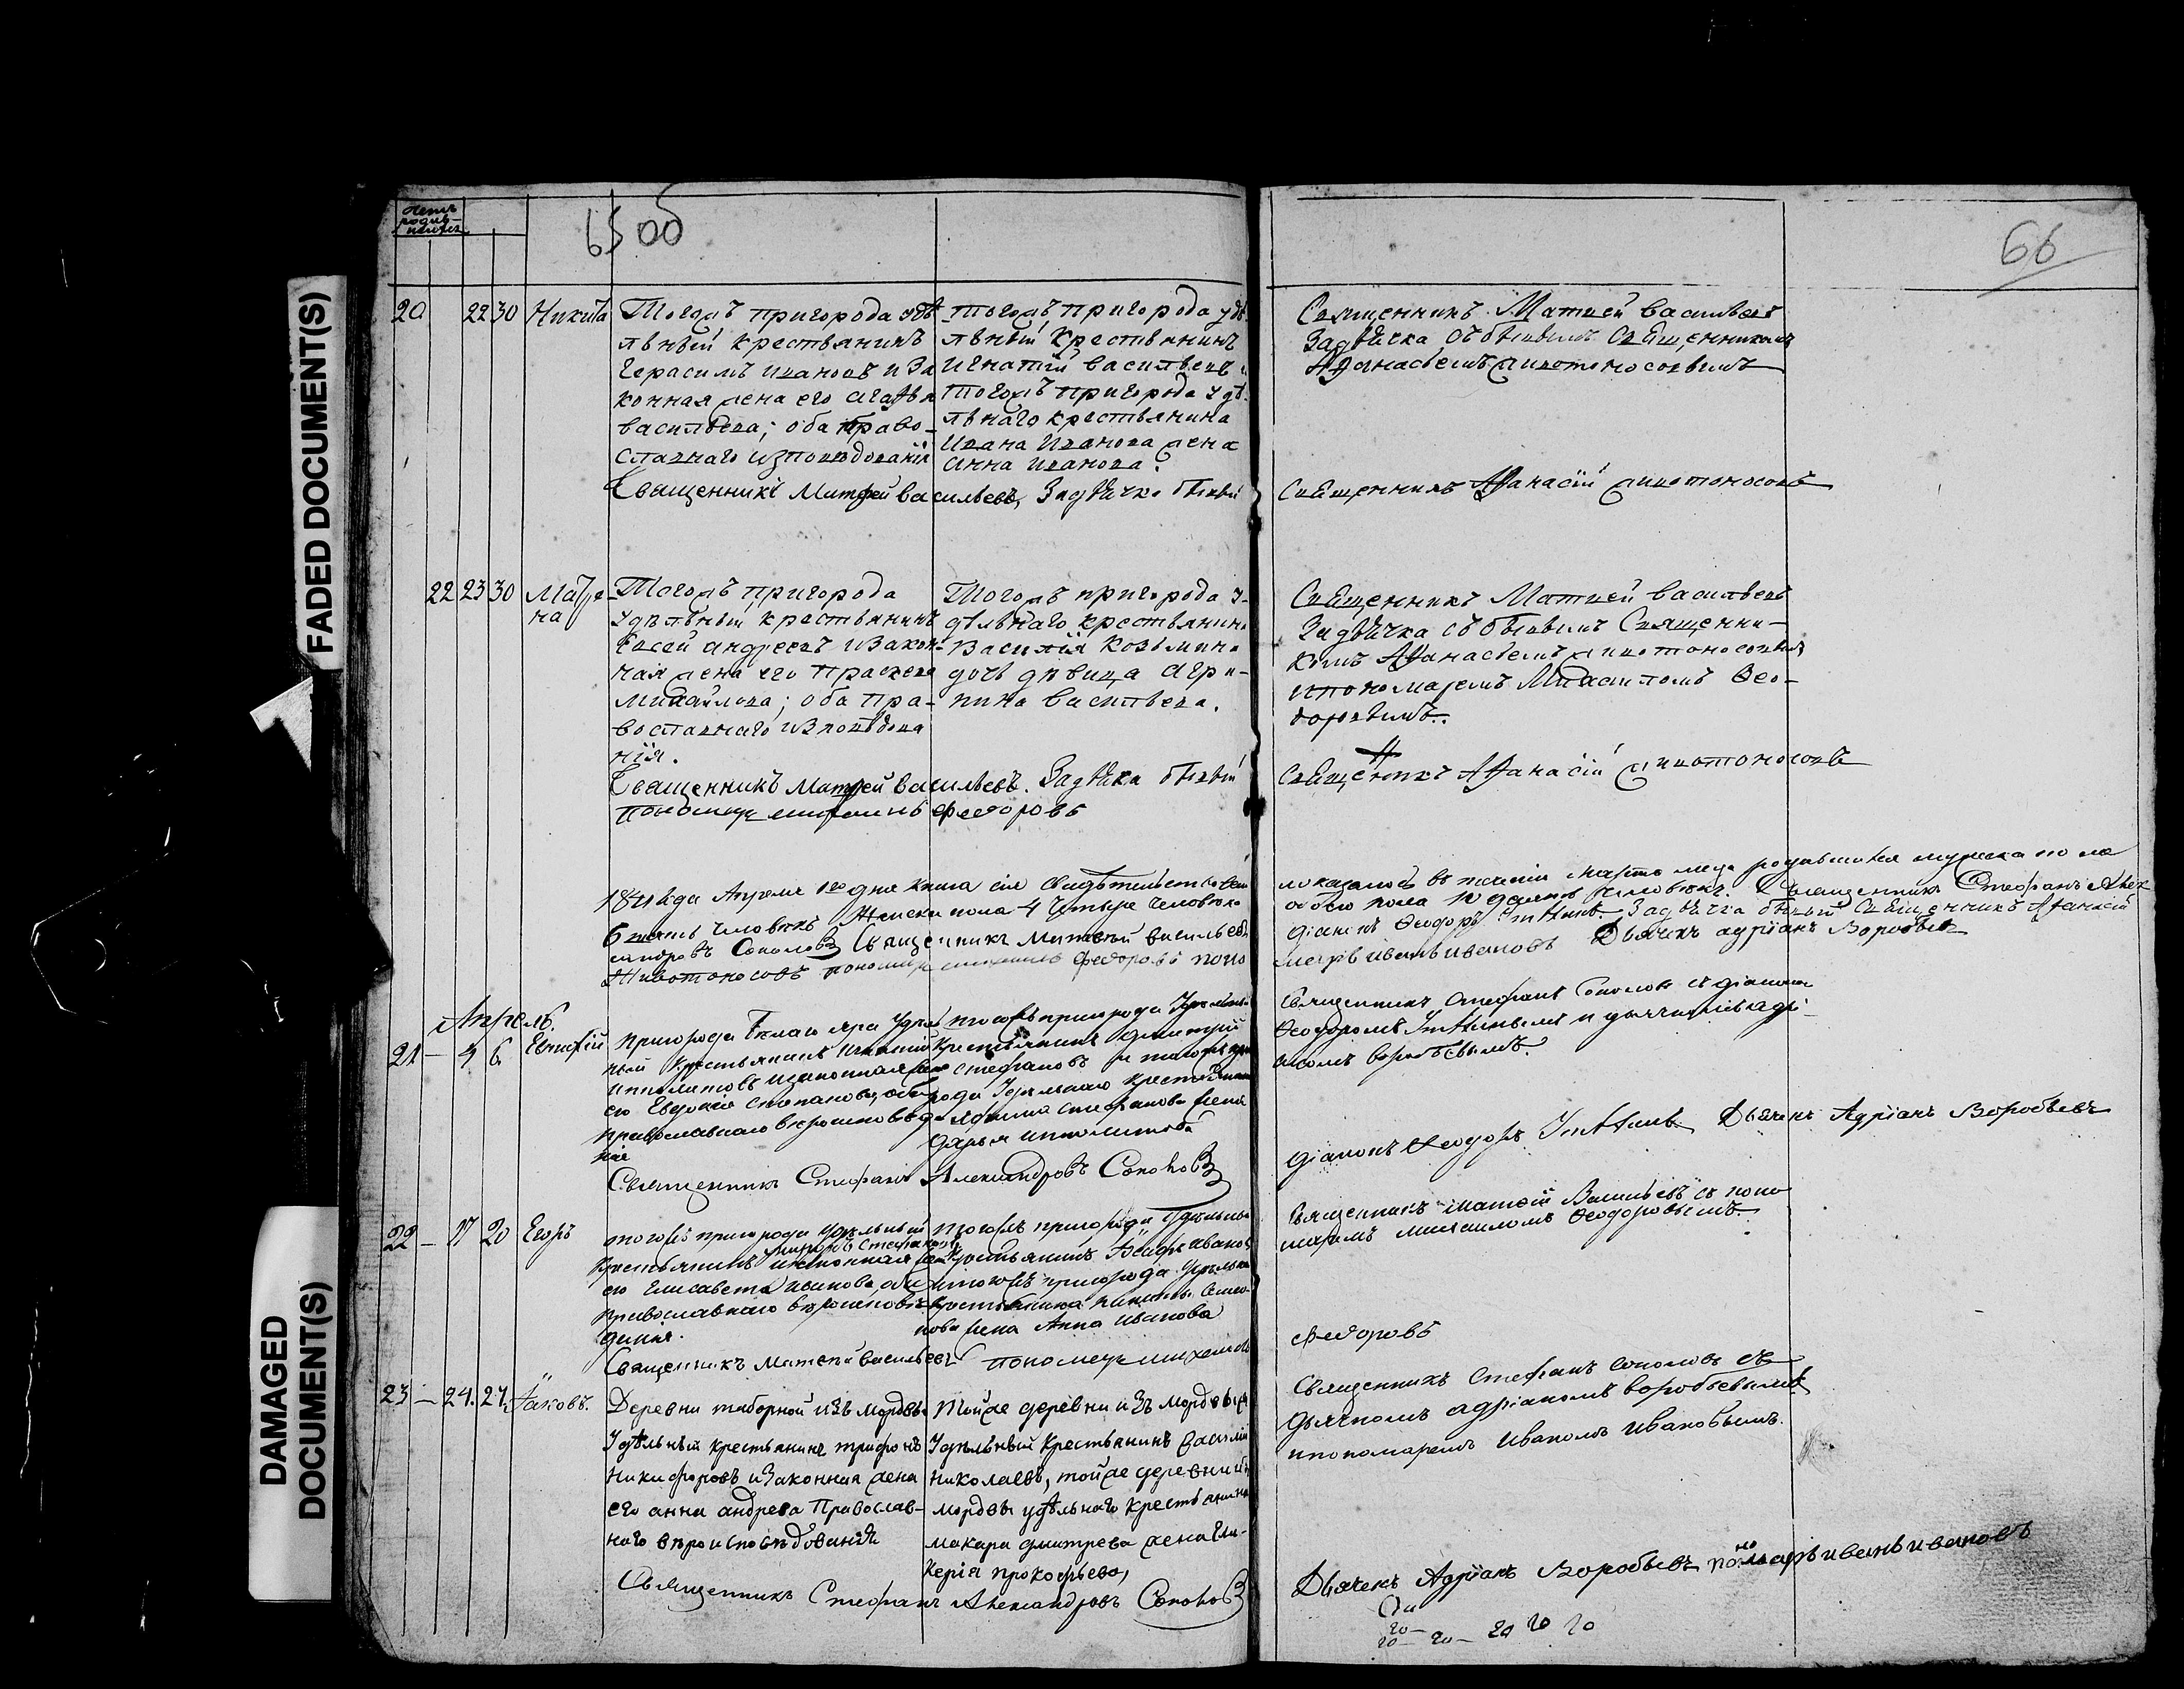 FADED DOCUMENT(S)
DAMAGED
DOCUMENT(S)
65 об
66
20 22 30 Никита
Тогожъ пригорода удѣ
льный крестьянинъ
Герасимъ Ивановъ и За
конная жена его Агафья
Васильева; оба право-
славнаго изповѣдованія
тогожъ пригорода удѣ
льный крестьянинъ
Игнатій Васильевъ и
тогожъ пригорода удѣ
льнаго крестьянина
Ивана Иванова жена
Анна Иванова.
Священникъ Матвей Васильевъ
Задьячка съ бывшимъ Священникомъ
Афанасьемъ Животоносовымъ
Священникъ Матфей Васильевъ, Задьячка бывый
Священникъ Афанасій Животоносовъ
22 23 30 Матре
на
Тогожъ пригорода
Удѣльный крестьянинъ
Евсей Андреевъ и Закон-
ная жена его Праскева
Михайлова; оба пра-
вославнаго изповѣдова
нія.
Тогожъ пригорода у-
дѣльнаго крестьянина
Василія Козьмина
дочь дѣвица Агри-
пина Васильева.
Священникъ Матвей Васильевъ
Задьячка съ бывшимъ Священни-
комъ Афанасьемъ Животоносовымъ
и пономаремъ Михаиломъ Фео-
доровымъ.
Священникъ Матфей Васильевъ. Задьячка бывый
Священникъ Афанасій Животоносовъ
Пономарь Михаилъ Федоровъ
1841 года Апреля 1го дня книга сія свидѣтельствована
показалось въ теченіи Марта месяца родившихся мужеска по ла
6 шесть человѣкъ Женска пола 4 четыре человѣка
обоего пола 10 десять человѣкъ. Священникъ Стефанъ Алек
сандровъ Соколовъ Священникъ Матвей Васильевъ
діаконъ Феодоръ Задьячка бывый Священникъ Афанасій
Животоносовъ пономарь Михаилъ Федоровъ поно
марь Иванъ Ивановъ Дьячекъ Адріанъ Воробьевъ
Апрель.
21 — 4 6 Евтифій
пригорода Белаго Яра Удѣль
ный крестьянинъ Игнатій
Ипполитовъ и законная жена
его Евдокія Степанова, оба
православнаго вероисповеда
ніе
тогожъ пригорода Удѣльный
Крестьянинъ Дмитрій
Стефановъ и тогожъ при
рода Удѣльнаго крестьянина
Стефанова жена
Дарья Ипполитова
Священникъ Стефанъ Соколовъ съ діакономъ
Феодоромъ и дьячкомъ Адрі
аномъ Воробьевымъ.
Священникъ Стефанъ Александровъ Соколовъ
діаконъ Феодоръ Дьячекъ Адріанъ Воробьевъ
22 — 17 20 Егоръ
тогожъ пригорода Удѣльный
Крестьянинъ Стефановъ и законная жена
его Елисавета Иванова, оба
православнаго вероисповѣ
данія.
тогожъ пригорода Удѣльный
Крестьянинъ Иванов
и тогожъ пригорода Удѣльна
крестьянина Никиты Семе
нова жена Анна Иванова
Священникъ Матвей Васильевъ съ поно
маремъ Михаиломъ Феодоровымъ.
Священникъ Матвей Васильевъ пономарь Михаилъ
Федоровъ
23 — 24. 27. Іаковъ.
Деревни таборной изъ мордвы
Удѣльный крестьянинъ Трифонъ
Никифоровъ и Законная жена
его Анна Андрева Православ-
наго вѣроисповѣдованія
Той же деревни изъ мордвы
Удѣльный крестьянинъ Василій
Николаевъ, той же деревни изъ
мордвы удѣльнаго крестьянина
Макара Дмитрева жена Гли-
керія Прокофьева,
Священникъ Стефанъ Соколовъ съ
Дьячкомъ Адріаномъ Воробьевымъ
и пономаремъ Иваномъ Ивановымъ.
Священникъ Стефанъ Александровъ Соколовъ
Дьячекъ Адріанъ Воробьевъ пономарь Иванъ Ивановъ
20 —
20 — 20 — 20 20 20